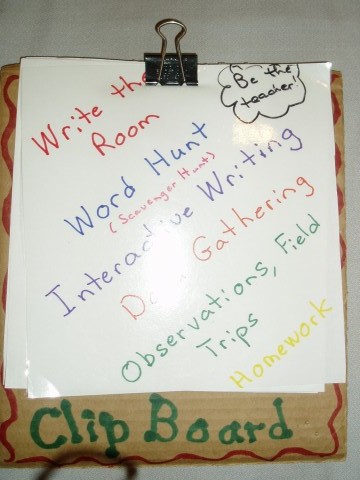 Write the
Room
Be the
teacher!
Word Hunt
(Scavenger Hunt)
Interactive Writing
Data Gathering
Observations, Field
Trips
Homework
Clip Board